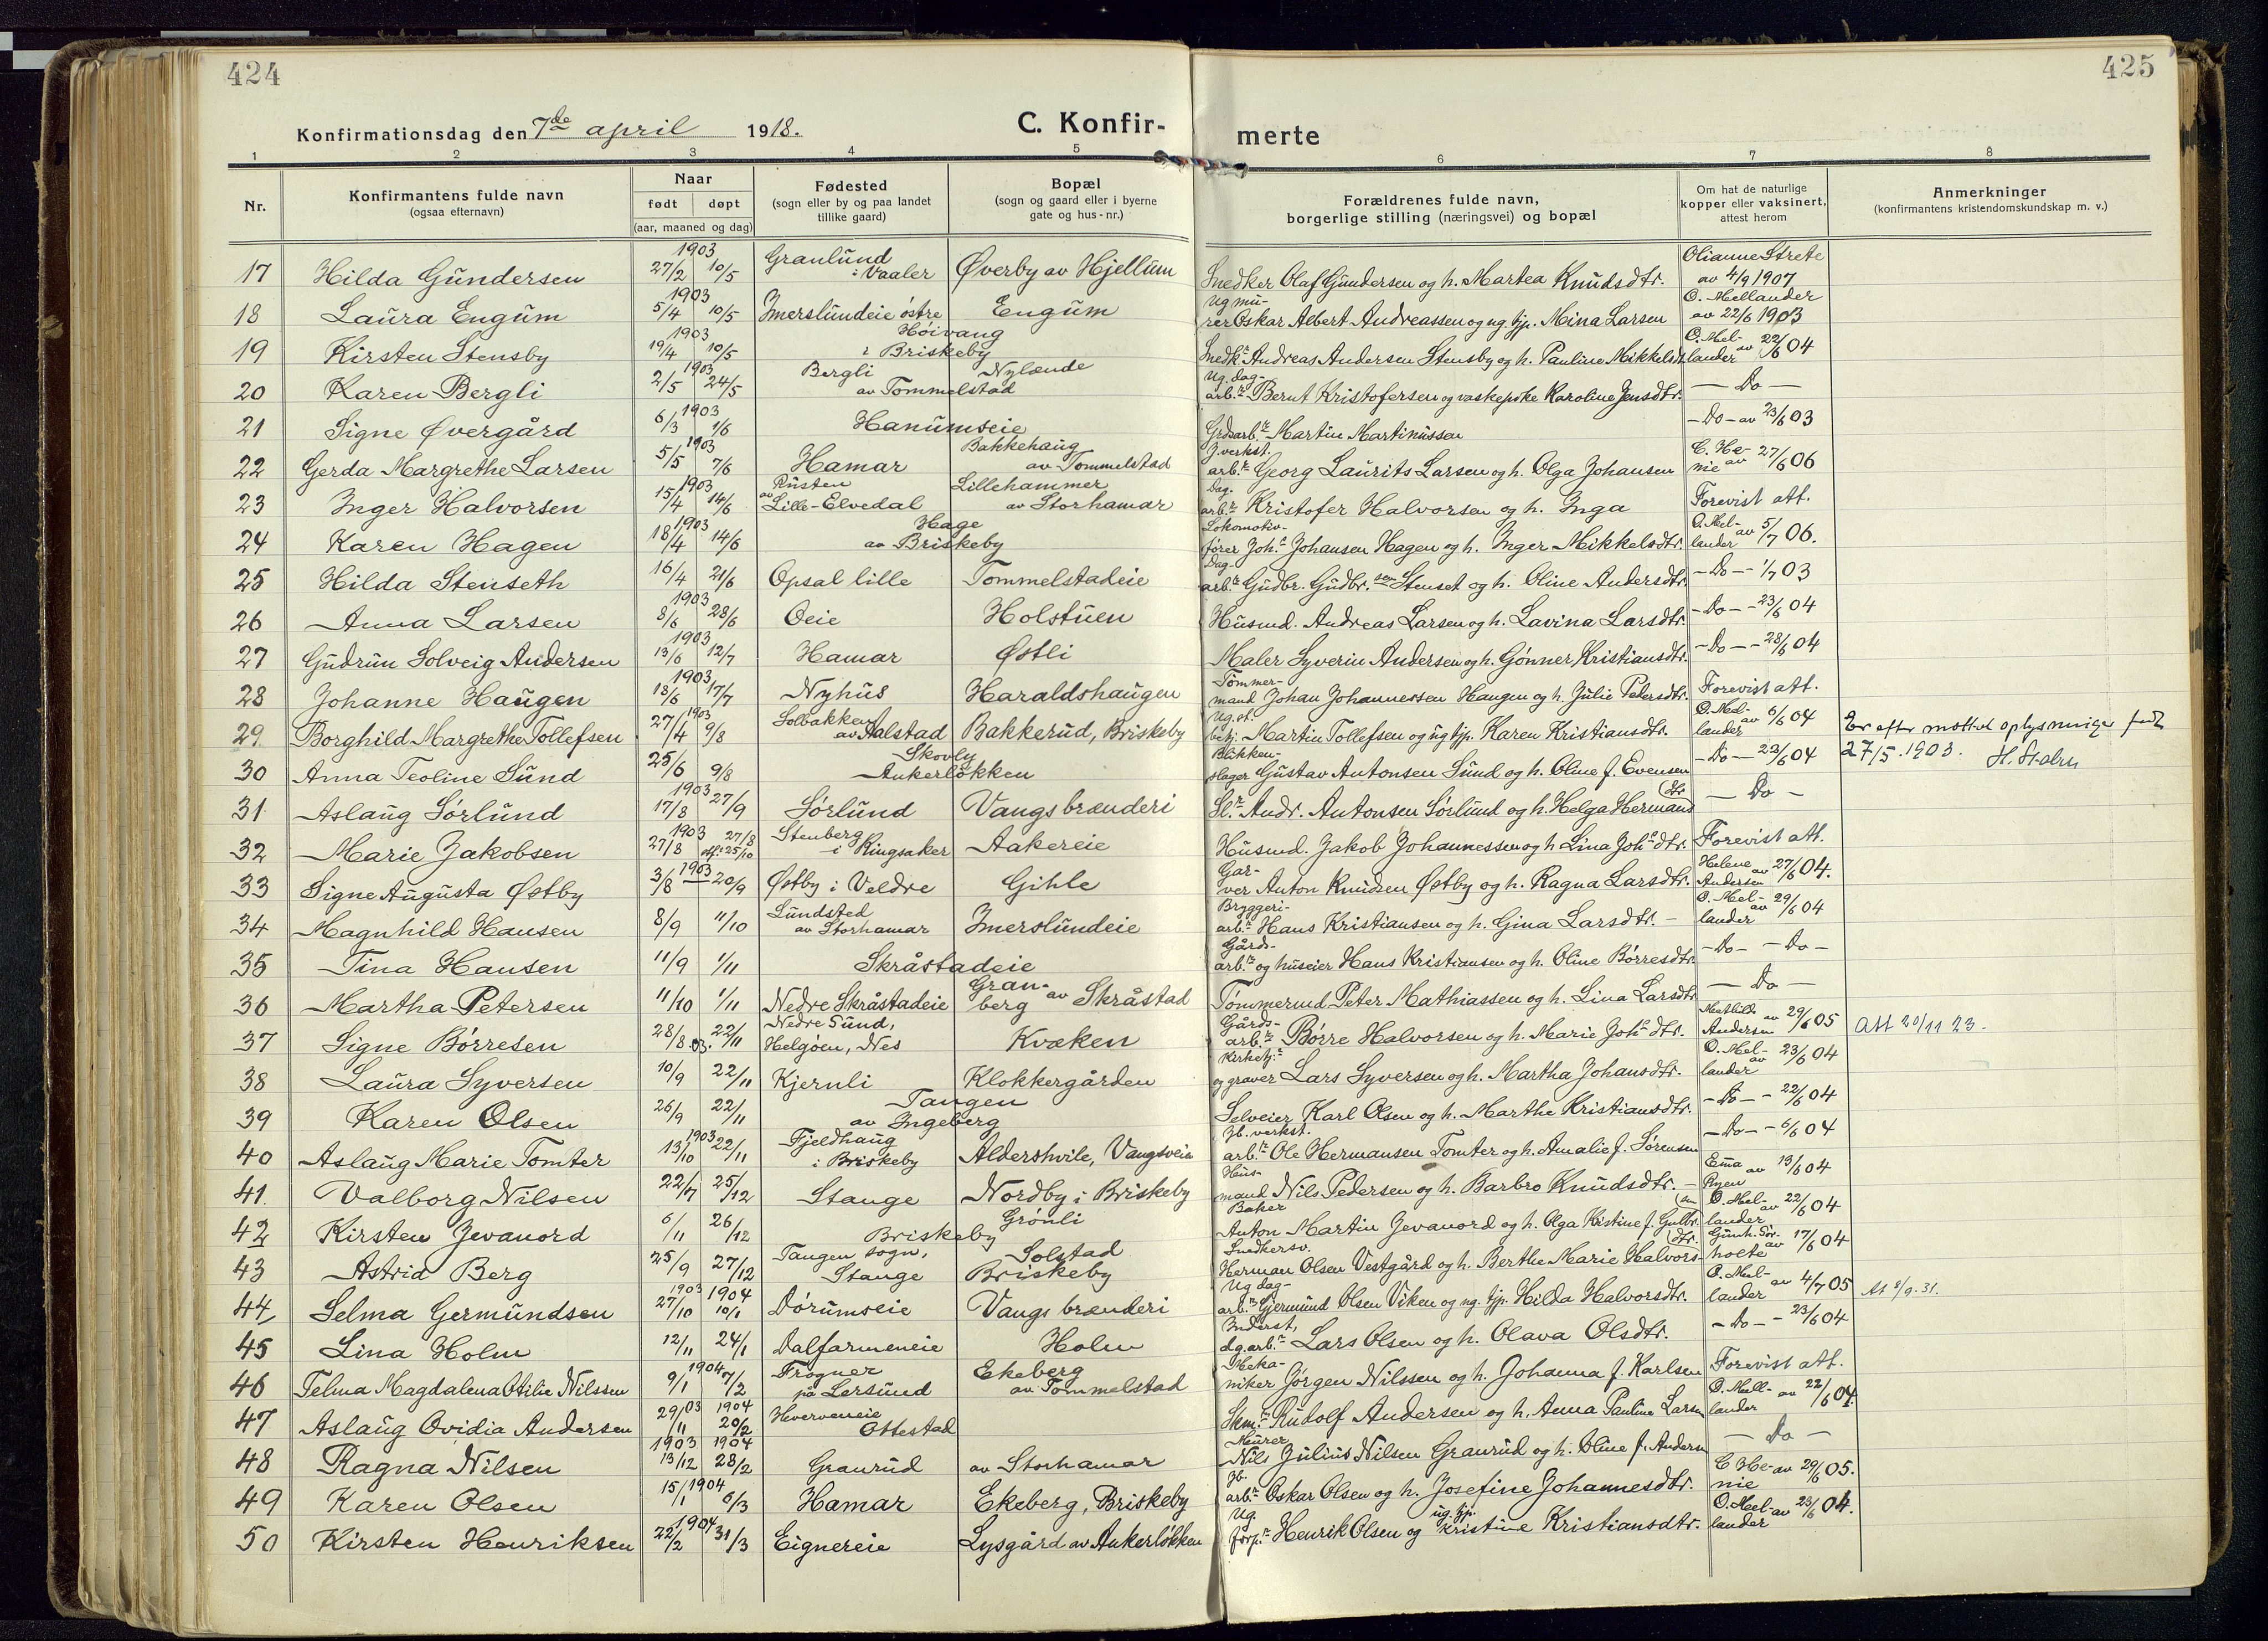 424
425
Konfirmationsdag den 7de april 1918.
C. Konfir-
merte
1 2 3 4 5 6 7 8
Nr.
Konfirmantens fulde navn
(ogsaa efternavn)
Naar
født døpt
(aar, maaned og dag)
Fødested
(sogn eller by og paa landet
tillike gaard)
Bopæl
(sogn og gaard eller i byerne
gate og hus-nr.)
Forældrenes fulde navn,
borgerlige stilling (næringsvei) og bopæl
Om hat de naturlige
kopper eller vaksinert,
attest herom
Anmerkninger
(konfirmantens kristendomskundskap m. v.)
17 Hilda Gundersen 1903 27/2 10/5 Granlund i Vaaler Øverby av Hjellum Snedker Olaf Gundersen og h. Martea Knudsdtr. Olianne Strete av 4/9 1907
18 Laura Engum 1903 5/4 10/5 Imerslundeie østre Engum Ug mu- rer Oskar Albert Andreassen og ug. tjp. Mina Larsen O. Mellander av 22/6 1903
19 Kirsten Stensby 1903 19/4 10/5 Høivang i Briskeby Snedkr Andreas Andersen Stensby og h. Pauline Mikkelsdt. O. Mel- lander av 22/6 04
20 Karen Bergli 1903 2/5 24/5 Bergli Nylænde av Tommelstad Ug. dag- arb.r Bernt Kristofersen og vaskepike Karoline Jensdtr. - Do -
21 Signe Øvergård 1903 6/3 1/6 Hanumseie Grdsarb.r Martin Martinussen - Do - av 23/6 03
22 Gerda Margrethe Larsen 1903 5/5 7/6 Hamar Bakkehaug av Tommelstad J.verkst. arb.r Georg Laurits Larsen og h. Olga Johansen C. He- nie av 27/6 06
23 Inger Halvorsen 1903 15/4 14/6 Rusten av Lille-Elvedal Lillehammer av Storhamar Dag- arb.r Kristofer Halvorsen og h. Inga Forevist att.
24 Karen Hagen 1903 18/4 14/6 Hage av Briskeby Lokomotiv- fører Joh.s Johansen Hagen og h. Inger Mikkelsdtr. O. Mel- lander av 5/7 06.
25 Hilda Stenseth 16/4 21/6 Opsal lille Tommelstadeie Dag- arb.r Gudbr. Gudbr.sen Stenset og h. Oline Andersdtr. - Do - - 1/7 03
26 Anna Larsen 1903 8/6 28/6 Oeie Holstuen Husmd. Andreas Larsen og h. Lavina Larsdtr. - Do - - 23/6 04
27 Gudrun Solveig Andersen 1903 13/6 12/7 Hamar Østli Maler Syverin Andersen og h. Gønner Kristiansdtr. - Do - - 28/6 04
28 Johanne Haugen 1903 18/6 17/7 Nyhus Haraldshaugen Tømmer- mand Johan Johannessen Haugen og h. Julie Petersdtr. Forevist att.
29 Borghild Margrethe Tollefsen 1903 27/4 9/8 Solbakken av Aalstad Bakkerud, Briskeby Ug. st. betj. Martin Tollefsen og ug tjp. Karen Kristiansdtr. O. Mel- lander av 6/6 04 Er efter mottat oplysninger født
27/5. 1903.
30 Anna Teoline Sund 25/6 9/8 Skovly Ankerløkken Blikken- slager Gustav Antonsen Sund og h. Oline f. Evensen - Do - 23/6 04
31 Aslaug Sørlund 1903 17/8 27/9 Sørlund Vangs brænderi Sl.r Andr. Antonsen Sørlund og h. Helga Hermans dtr - Do -
32 Marie Jakobsen 1903 27/8 27/8 stf. 25/10 Stenberg i Ringsaker Aakereie Husmd. Jakob Johannessen og h Lina Joh.s dtr. Forevist att.
33 Signe Augusta Østby 1903 3/8 20/9 Østby i Veldre Gihle Gar- ver Anton Knudsen Østby og h. Ragna Larsdtr. Helene Andersen av 27/6 04.
34 Magnhild Hansen 8/9 11/10 Lundsted av Storhamar Imerslundeie Bryggeri- arb.r Hans Kristiansen og h. Gina Larsdtr. - O. Mel- lander av 29/6 04
35 Tina Hansen 11/9 1/11 Skråstadeie Gårds- arb.r og huseier Hans Kristiansen og h. Oline Børresdtr - Do - - Do -
36 Martha Petersen 11/10 1/11 Nedre Skråstadeie Gran- berg av Skråstad Tømmermd. Peter Mathiassen og h. Lina Larsdtr - Do -
37 Signe Børresen 28/8 03. 22/11 Nedre Sund, Helgøen, Nes Kvæken Gårds- arb.r Børre Halvorsen og h. Marie Joh.s dtr. Mathilde Andersen av 29/6 05 Att 20/11 23.
38 Laura Syversen 10/9 22/11 Kjernli Klokkergården Kirketj.r og graver Lars Syversen og h. Martha Johansdtr. O. Mel- lander av 23/6 04
39 Karen Olsen 26/9 22/11 Tangen av Ingeberg Selveier Karl Olsen og h. Marthe Kristiansdtr. - Do - - 22/6 04
40 Aslaug Marie Tomter 1903 13/10 22/11 Fjeldhaug i Briskeby Aldershvile, Vangsveien Jb. verkst. arb.r Ole Hermansen Tomter og h. Amalie f. Sørensen - Do - - 6/6 04
41. Valborg Nilsen 22/7 25/12 Stange Nordby i Briskeby Hus- mand Nils Pedersen og h. Barbro Knudsdtr. - Ema Ryen av 13/6 04
42 Kirsten Jevanord 6/11 26/12 Grønli Briskeby Baker Anton Martin Jevanord og h. Olga Kistine f. Gulbr. sen O. Mel- lander av 22/6 04
43 Astrid Berg 25/9 27/12 Tangen sogn, Stange Solstad Briskeby Snedkersv. Herman Olsen Vestgård og h. Berthe Marie Halvors- dtr. holte av 17/6 04
44 Selma Germundsen 1903 27/10 1904 10/1 Dørumseie Vangs brænderi Ug dag- arb.r Gjermund Olsen Viken og ug. tjp. Hilda Halvorsdtr. O. Mel- lander av 4/7 05 At 8/9. 31.
45 Lina Holm 12/11 24/1 Dalfarmeneie Holm Inderst, dg.arb.r Lars Olsen og h. Olava Olsdtr. - Do - - 23/6 04
46 Telma Magdalena Otilie Nilssen 1904 9/1 7/2 Frogner på Lersund Ekeberg av Tommelstad Meka- niker Jørgen Nilssen og h. Johanna f. Karlsen Forevist att.
47 Aslaug Ovidia Andersen 29/11 03 1904 20/2 Hverveneie Ottestad Skm.r Rudolf Andersen og h. Anna Pauline Larsen O. Mell- lander av 22/6 04.
48 Ragna Nilsen 1903 13/12 1904 28/2 Granrud av Storhamar Murer Nils Julius Nilsen Granrud og h. Oline f. Andersen - Do -
49 Karen Olsen 1904 15/1 6/3 Hamar Ekeberg, Briskeby Jb. arb.r Oskar Olsen og h. Josefine Johannesdtr. C He- nie av 29/6 05.
50 Kirsten Henriksen 1904 22/2 31/3 Eignereie Lysgård av Ankerløkken Ug. forp.r Henrik Olsen og ug. tjp. Kristine Kristiansdtr. O. Mel- lander av 23/6 04.